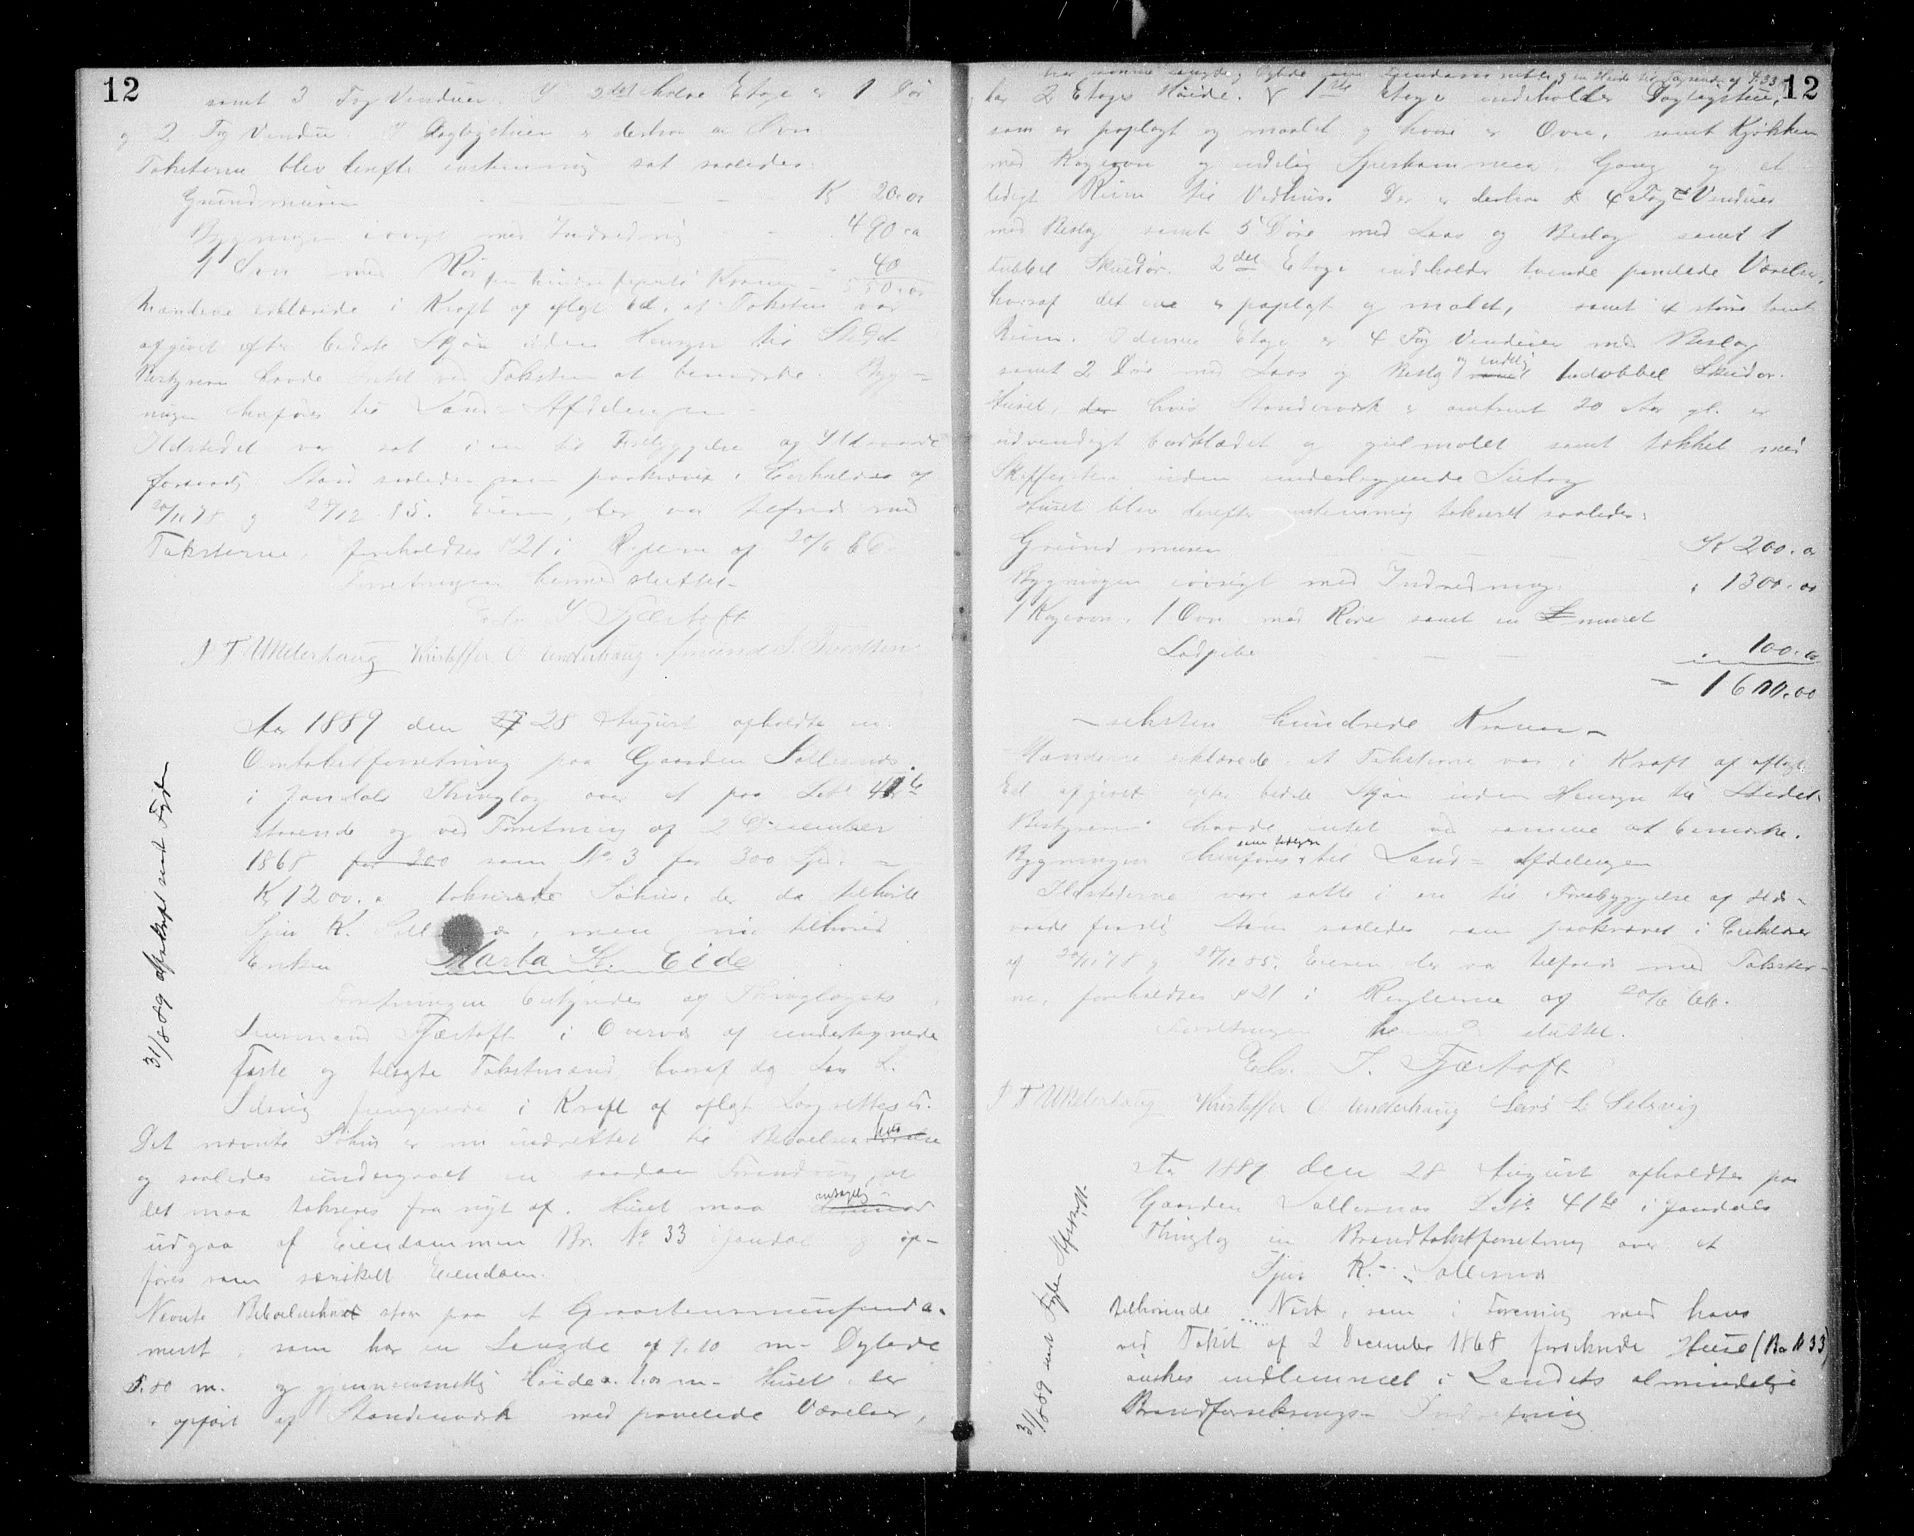 12
samt 3 Fag Vinduer. I 2det halve Etage er 1 Dør
og 2 Fag Vindue. I Dagligstuen er derhos en Ovn.
Taksterne blev derefter enstemmig sat saaledes:
Grundmuren K 20.00
Bygningen iøvrigt med Indredning 490.00
1 Ovn med Rør 40
fem hundrede femti Kroner 550.00
Mændene erklærede i Kraft af aflagt Ed, at Taksten var
afgivet efter bedste Skjøn uden Hensyn til Stedet
Bestyreren havde Intet ved Taksten at bemærke. Byg-
ningen henføres til Land-Afdelingen
Ildstedet var sat i en til Forebyggelse af Ildsvaade
forsvarlig Stand saaledes som paakrævet i Cirkulærer af
20/11 78 og 28/12 85. Eieren, der var tilfreds med
Taksterne, foreholdtes § 21 i Reglerne af 20/6 66
Forretningen hermed sluttet.
Edv. I. Fjærtoft
J T Underhaug Kristoffer O. Underhaug Amund S. Tvedten
Aar 1889 den 27 28 August afholdtes en
Omtakstforretning paa Gaarden Sollesnæs
i Jondals Thinglag over et paa Litr. 41 b
staaende og ved Forretning af 2 December
1868 for 300 som No. 3 for 300 Spd. =
K 1200.00 takserede Søhus, der da tilhørte
Sjur K. Sollesnæs, men nu tilhører
Enken Marta K. Eide
Forretningen bestyredes af Thinglagets
Lensmand Fjærtoft i Overvær af undertegnede
faste og tilsagte Takstmænd hvoraf dog Lars L.
Selsvig fungerede i Kraft af aflagt Lagrettesed.
Det nævnte Søhus er nu indrettet til Beboelseshus
og saaledes undergaaet en saadan Forandring at
det maa takseres fra nyt af. Huset maa antagelig
udgaa af Eiendommen Br. No 33 i Jondal og op-
føres som særskilt Eiendom.
Nævnte Beboelseshus staar paa et Graastensmursfunda-
ment, som har en Længde af 9.10 m. Dybde
5.80 m. og gjennemsnitlig Høide Huset, der
er opført af Standerværk med panelede Værelser,
31/8 89 Afskrift sendt Fogden
12
har samme Længde og Dybde som Fundamentet og en Høide til Tagrende af 4.33
har 2 Etagers Høide. I 1ste Etage indeholdes Dagligstue,
som er paplagt og maalet og hvori er Ovn, samt Kjøkken
med Kogeovn og endelig Spiskammer, Gang og et
ledigt Rum til Vedhus. Der er derhos 4 Fag Vinduer
med Beslag samt 5 Døre med Laas og Beslag samt 1
dobbel Skuedør. 2den Etage indholder tvende panelede Værelser,
hvoraf det ene er paplagt og malet, samt et større tomt
Rum. I denne Etage er 4 Fag Vinduer med Beslag
samt 2 Døre med Laas og Beslag og endelig 1 dobbel Skuedør.
Huset, hvis Standerværk er omtrent 20 Aar gl. er
udvendigt bordklædt og gulmalet samt tækket med
Skifersten uden underliggende Sutag
Huset blev derefter enstemmig takseret saaledes:
Grundmuren K 200.00
Bygningen iøvrigt med Indredning " 1300.00
1 Kogeovn, 1 Ovn med Røre samt en muret
Ladpibe " 100.00
= 1600.00
– seksten hundrede Kroner –
Mændene erklærede, at Taksterne var i Kraft af aflagt
Ed afgivet efter bedste Skjøn uden Hensyn til Stedet.
Bestyreren havde intet ved samme at bemærke.
Bygningen henføres til Land-Afdelingen
Ildstederne vare satte i en til Forebyggelse af Ilds-
vaade forsvarlig Stand saaledes som paakrævet i Cirkulærer
af 20/11 78 og 28/12 85. Eieren der var tilfreds med Takster-
ne, foreholdtes § 21 i Reglerne af 20/6 66.
Forretningen hermed sluttet.
Edv. I. Fjærtoft
J T Underhaug Kristoffer O Underhaug Lars L Selsvig
Aar 1889 den 28 August afholdtes paa
Gaarden Sollesnæs Litr. 41 b i Jondals
Thinglag en Brandtakstforretning over et
Sjur K. Sollesnæs
tilhørende Nøst, som i Forening med hans
ved Takst af 2 December 1868 forsikrede Huse (Br. N 33)
ønskes indlemmet i Landets almindelige
Brandforsikrings-Indretning
31/8 89 sendt Fogden Afskrift.